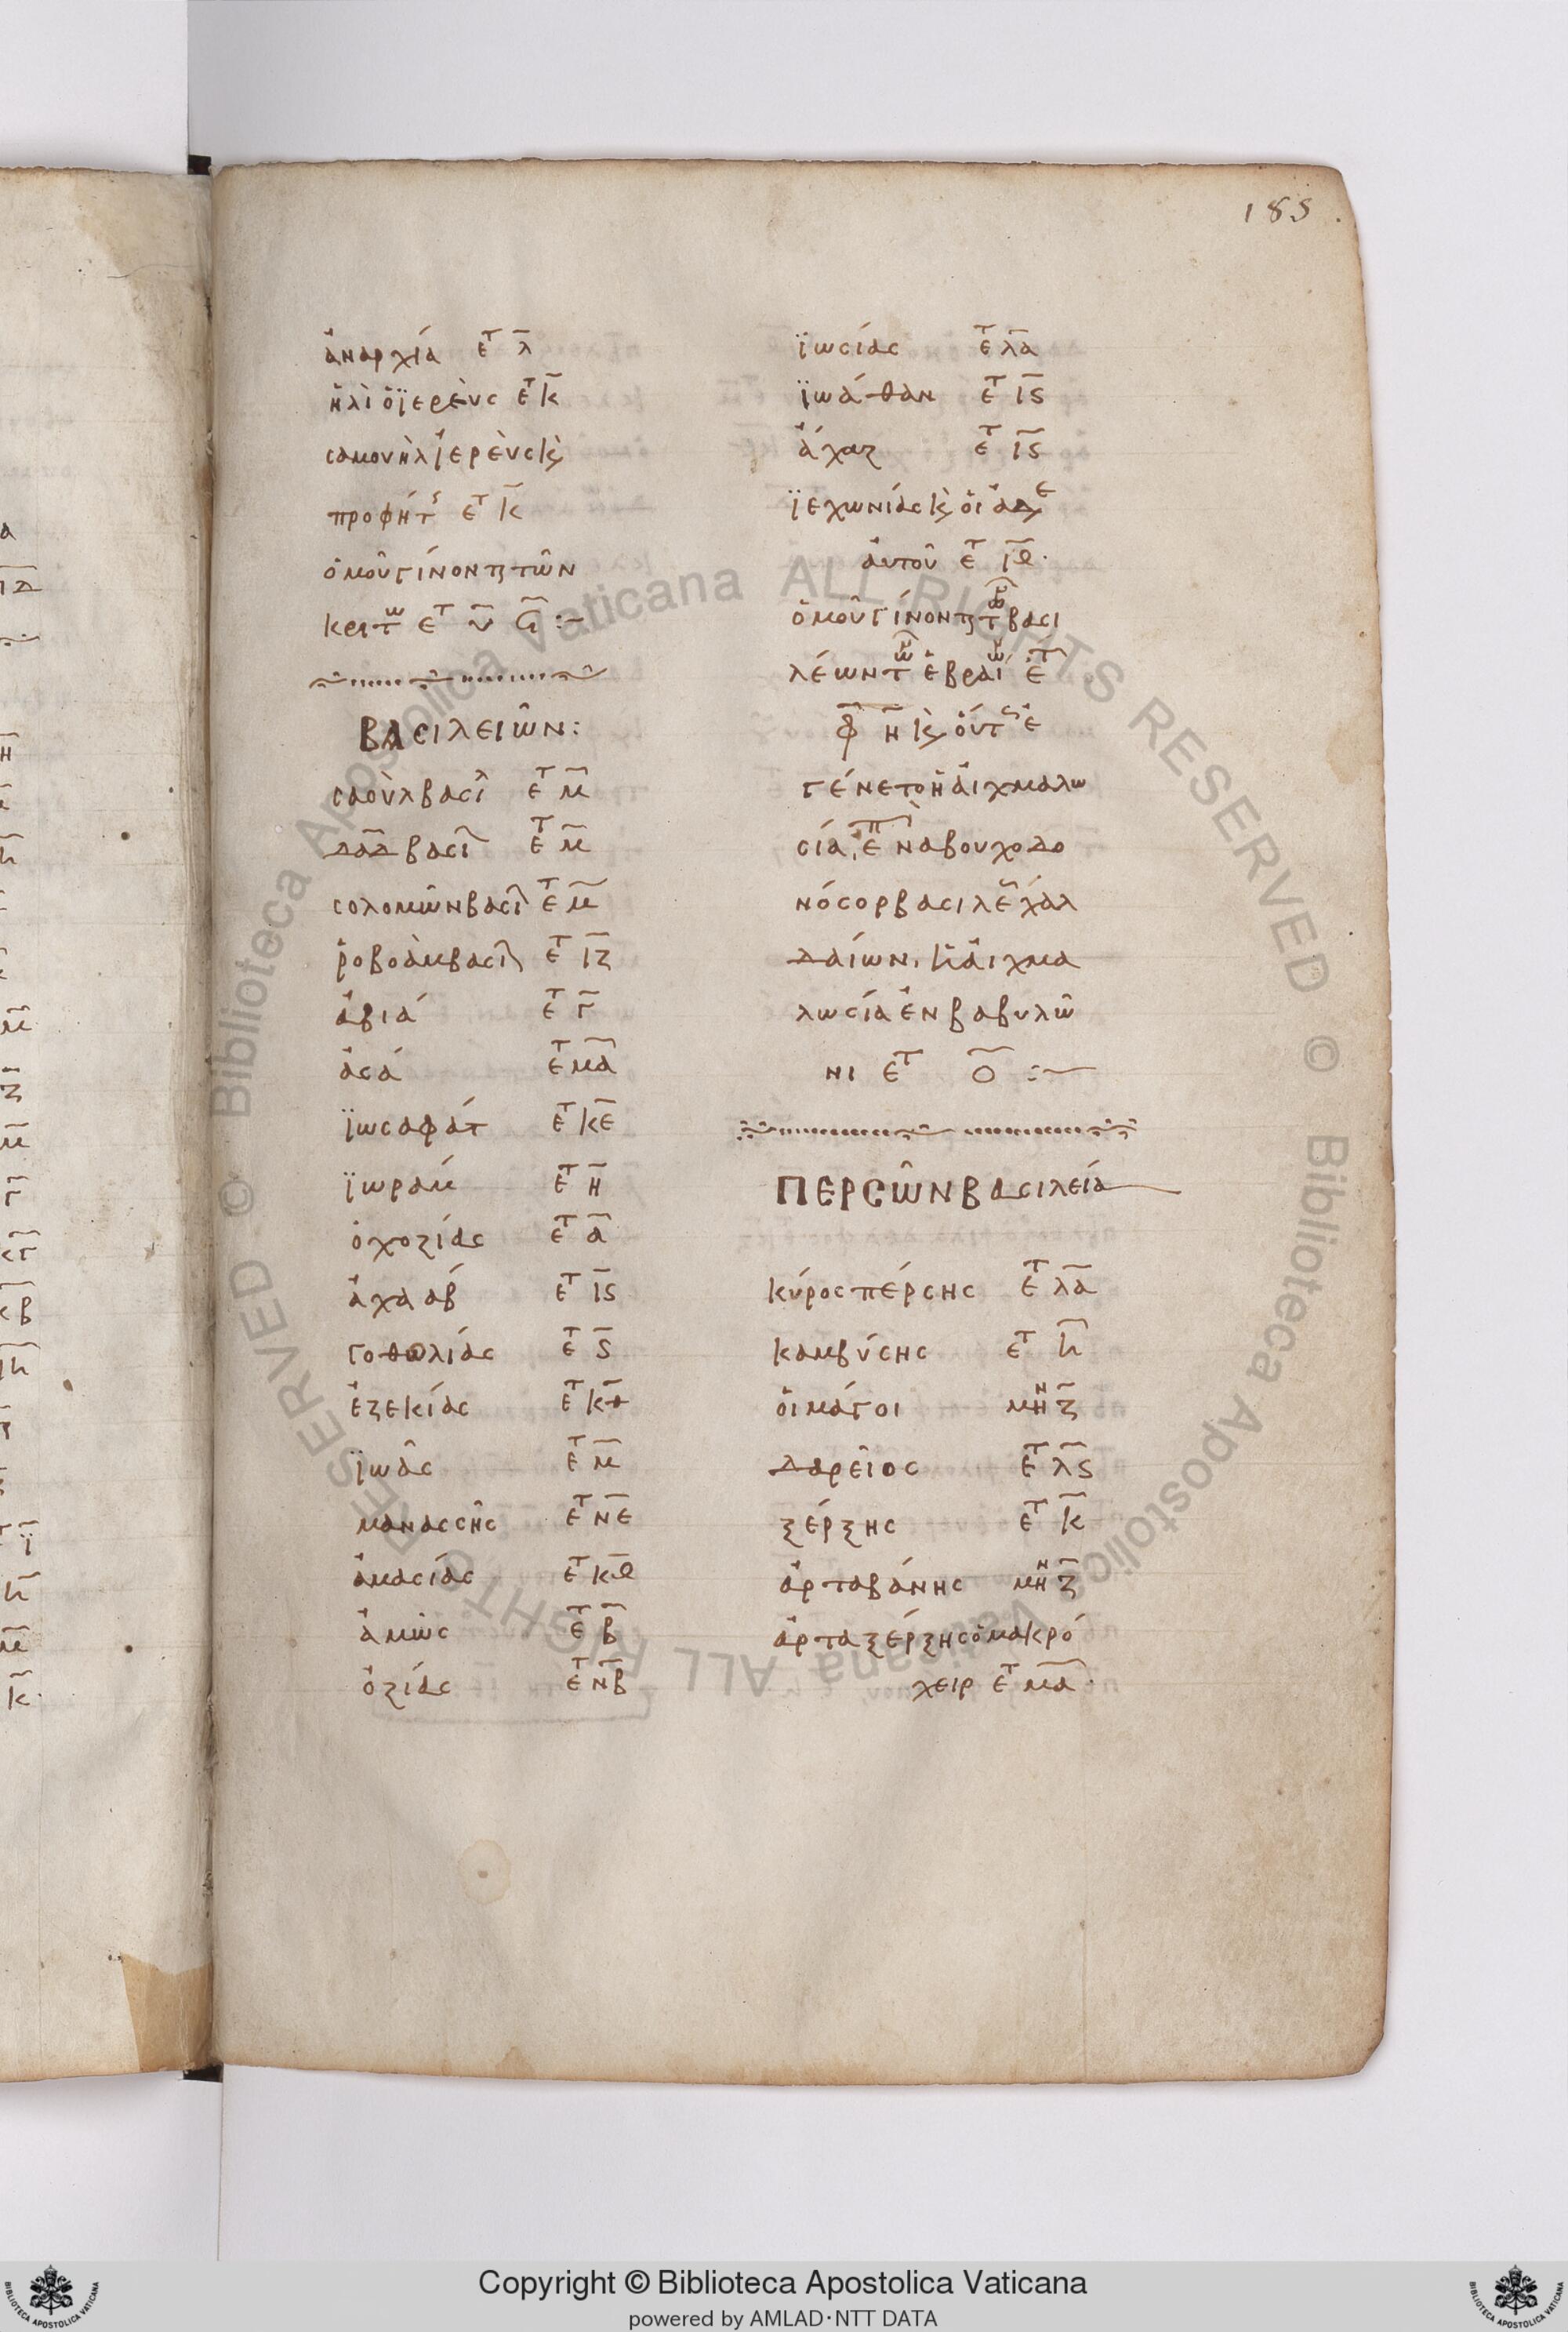 185
ἀναρχία ἐτ λ̅
ἠλὶ ὁ ἱερεὺς ἐτ κ̅
σαμουὴλ ἱερεὺς κ(αὶ)
προφήτς ἐτ κ̅
ὁμοῦ γίνονται τῶν
κριτῶ ἐτ υ̅
ΒΑΣΙΛΕΙῶΝ:
σαοὺλ βασιλ ἐτ μ̅
δ̅α̅δ̅ βασιλ ἐτ μ̅
σολομῶν βασιλ ἐτ μ̅
ῥοβοὰμ βασιλ ἐτ ι̅ζ̅
ἀβιά ἐτ γ̅
ἀσά ἐτ μ̅α̅
ἰωσαφάτ ἐτ κ̅ε̅
ἰωράμ ἐτ η̅
ὀχοζίας ἐτ α̅
ἀχαάβ ἐτ ι̅ϛ̅
γοθωλίας ἐτ ϛ̅
ἐζεκίας ἐτ κ̅θ̅
ἰωᾶς ἐτ μ̅
μανασσῆς ἐτ ν̅ε̅
ἀμασίας ἐτ κ̅ε̅
ἀμὼς ἐτ β̅
ὀζίας ἐτ ν̅β̅
ἰωσίας ἐτ λ̅α̅
ἰωάθαν ἐτ ι̅ϛ̅
ἄχαζ ἐτ ι̅ϛ̅
ἰεχωνίας κ(αὶ) οἱ ἀδε
αὐτοῦ ἐτ ι̅ε̅·
ὁμοῦ γίνονται τῶν βασι
λέων τῶν ἑβραίων ἔτ
φ̅ η̅ κ(αὶ) οὕτς ἐ
γένετο ἡ αἰχμαλω
σία, ἐπὶ ναβουχοδο
νόσορ βασιλέ χαλ
δαίων. κ(αὶ) ἡ αἰχμα
λωσία ἐν βαβυλῶ
νι ἐτ ο̅ :~
ΠΕΡΣῶΝ Βασιλεία
κύρος πέρσης ἐτ λ̅α̅
καμβύσης ἐτ η̅
οἱ μάγοι μῆν ζ̅
δαρεῖος ἐτ λ̅ϛ̅
ξέρξης ἐτ κ̅
ἀρταβάνης μῆν ζ̅
ἀρταξέρξης ὁ μακρό
χειρ ἐτ μ̅α̅·
Copyright © Biblioteca Apostolica Vaticana
powered by AMLAD·NTT DATA